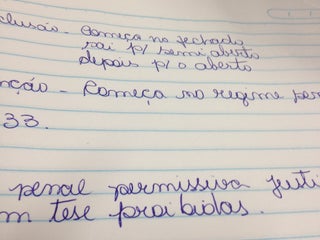 clusão - Começa no fechado
sai p/ semi aberto
depois p/ o aberto
nção - Começa no regime
33.
penal permissiva justi
m tese proibidas.